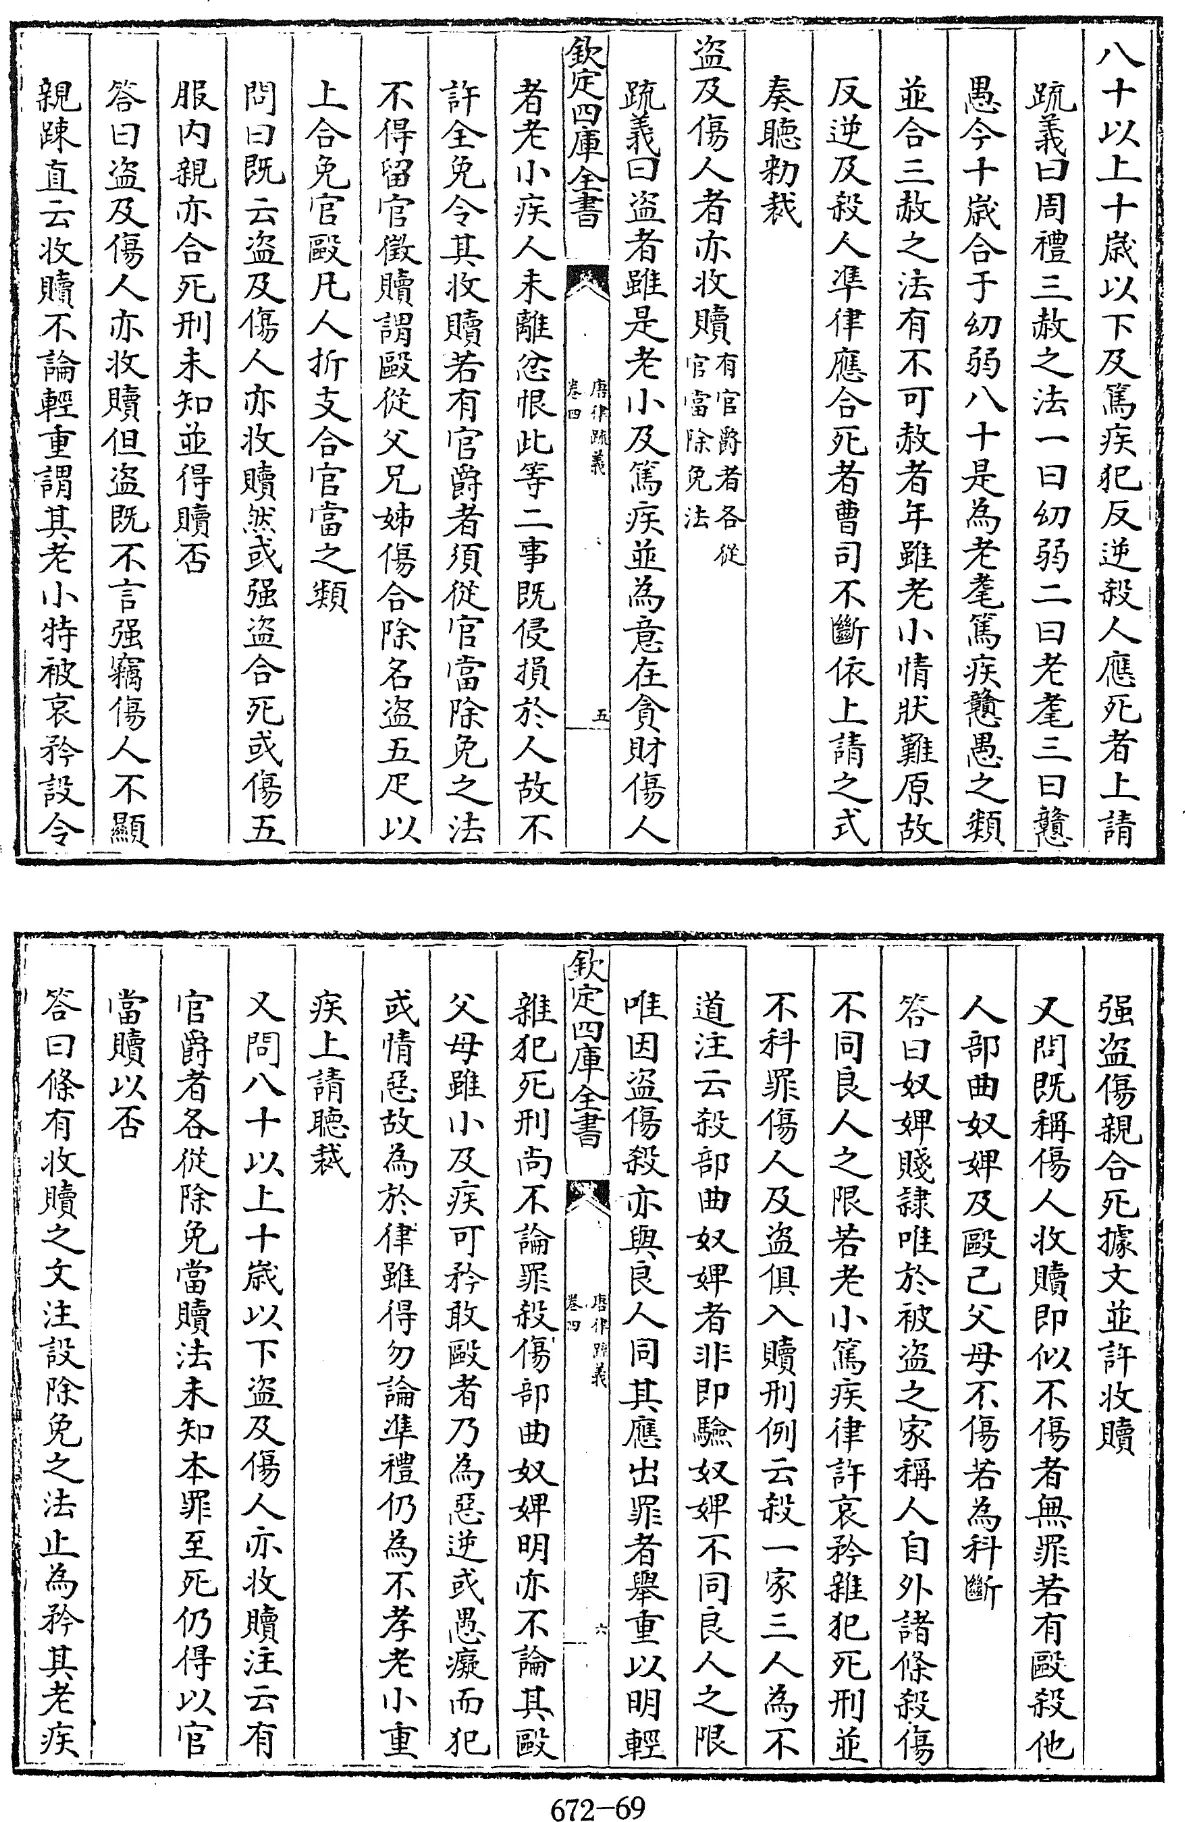 八十以上十歳以下及篤疾犯反逆殺人應死者上請
疏義曰周禮三赦之法一曰幼弱二曰老耄三曰戇
愚今十歳合于幼弱八十是為老耄篤疾戇愚之類
並合三赦之法有不可赦者年雖老小情狀難原故
反逆及殺人凖律應合死者曹司不斷依上請之式
奏聽勅裁
盗及傷人者亦收贖有官爵者各從官當除免法
疏義曰盗者雖是老小及篤疾並為意在貪財傷人
欽定四庫全書
唐律疏義
卷四
五
者老小疾人未離忿恨此等二事既侵損於人故不
許全免令其收贖若有官爵者須從官當除免之法
不得留官徵贖謂毆從父兄姊傷合除名盗五疋以
上合免官毆凡人折支合官當之類
問曰既云盗及傷人亦收贖然或强盗合死或傷五
服内親亦合死刑未知並得贖否
答曰盗及傷人亦收贖但盗既不言强竊傷人不顯
親踈直云收贖不論輕重謂其老小特被哀矜設令
强盗傷親合死據文並許收贖
又問既稱傷人收贖即似不傷者無罪若有毆殺他
人部曲奴婢及毆己父母不傷若為科斷
答曰奴婢賤隸唯於被盗之家稱人自外諸條殺傷
不同良人之限若老小篤疾律許哀矜雜犯死刑並
不科罪傷人及盗俱入贖刑例云殺一家三人為不
道注云殺部曲奴婢者非即驗奴婢不同良人之限
唯因盗傷殺亦與良人同其應出罪者舉重以明輕
欽定四庫全書
唐律疏義
卷四
六
雜犯死刑尚不論罪殺傷部曲奴婢明亦不論其毆
父母雖小及疾可矜敢毆者乃為惡逆或愚癡而犯
或情惡故為於律雖得勿論凖禮仍為不孝老小重
疾上請聽裁
又問八十以上十歳以下盗及傷人亦收贖注云有
官爵者各從除免當贖法未知本罪至死仍得以官
當贖以否
答曰條有收贖之文注設除免之法止為矜其老疾
672-69